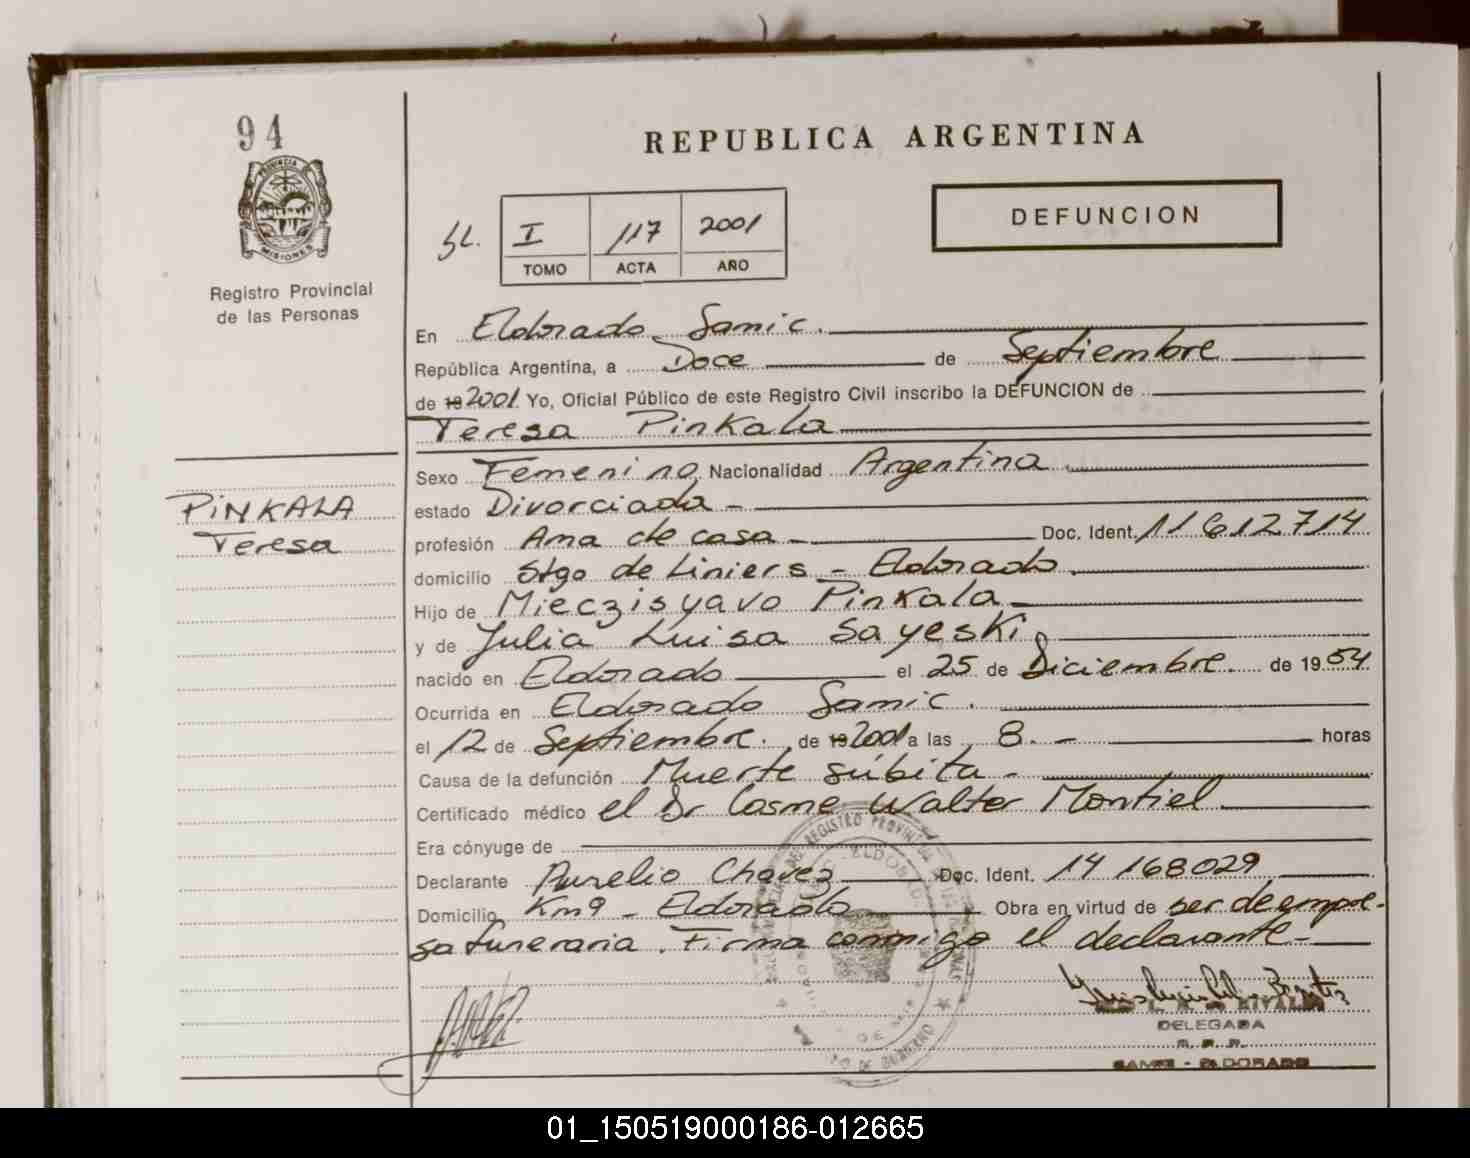 94
PROVINCIA
MISIONES
Registro Provincial
de las Personas
REPUBLICA ARGENTINA
DEFUNCION
SL. I 117 2001
TOMO ACTA AÑO
En Eldorado Samic.
República Argentina, a Doce de Septiembre
de 19 2001 Yo, Oficial Público de este Registro Civil inscribo la DEFUNCION de
Teresa Pinkala
PINKALA
Teresa
Sexo Femenino Nacionalidad Argentina
estado Divorciada -
profesión Ama de casa - Doc. Ident. 11 612 714
domicilio Stgo de Liniers - Eldorado
Hijo de Mieczisyavo Pinkala
y de Julia Luisa Sayeski
nacido en Eldorado el 25 de Diciembre. de 1954
Ocurrida en Eldorado Samic.
el 12 de Septiembre. de 19 2001 a las 8. - horas
Causa de la defunción Muerte súbita -
Certificado médico el Dr Cosme Walter Montiel
Era cónyuge de
Declarante Aurelio Chavez Doc. Ident. 14 168029
Domicilio Km9 - Eldorado Obra en virtud de ser de empre-
sa funeraria. Firma conmigo el declarante -
DELEGADA
SAMIC - ELDORADO
01_150519000186-012665